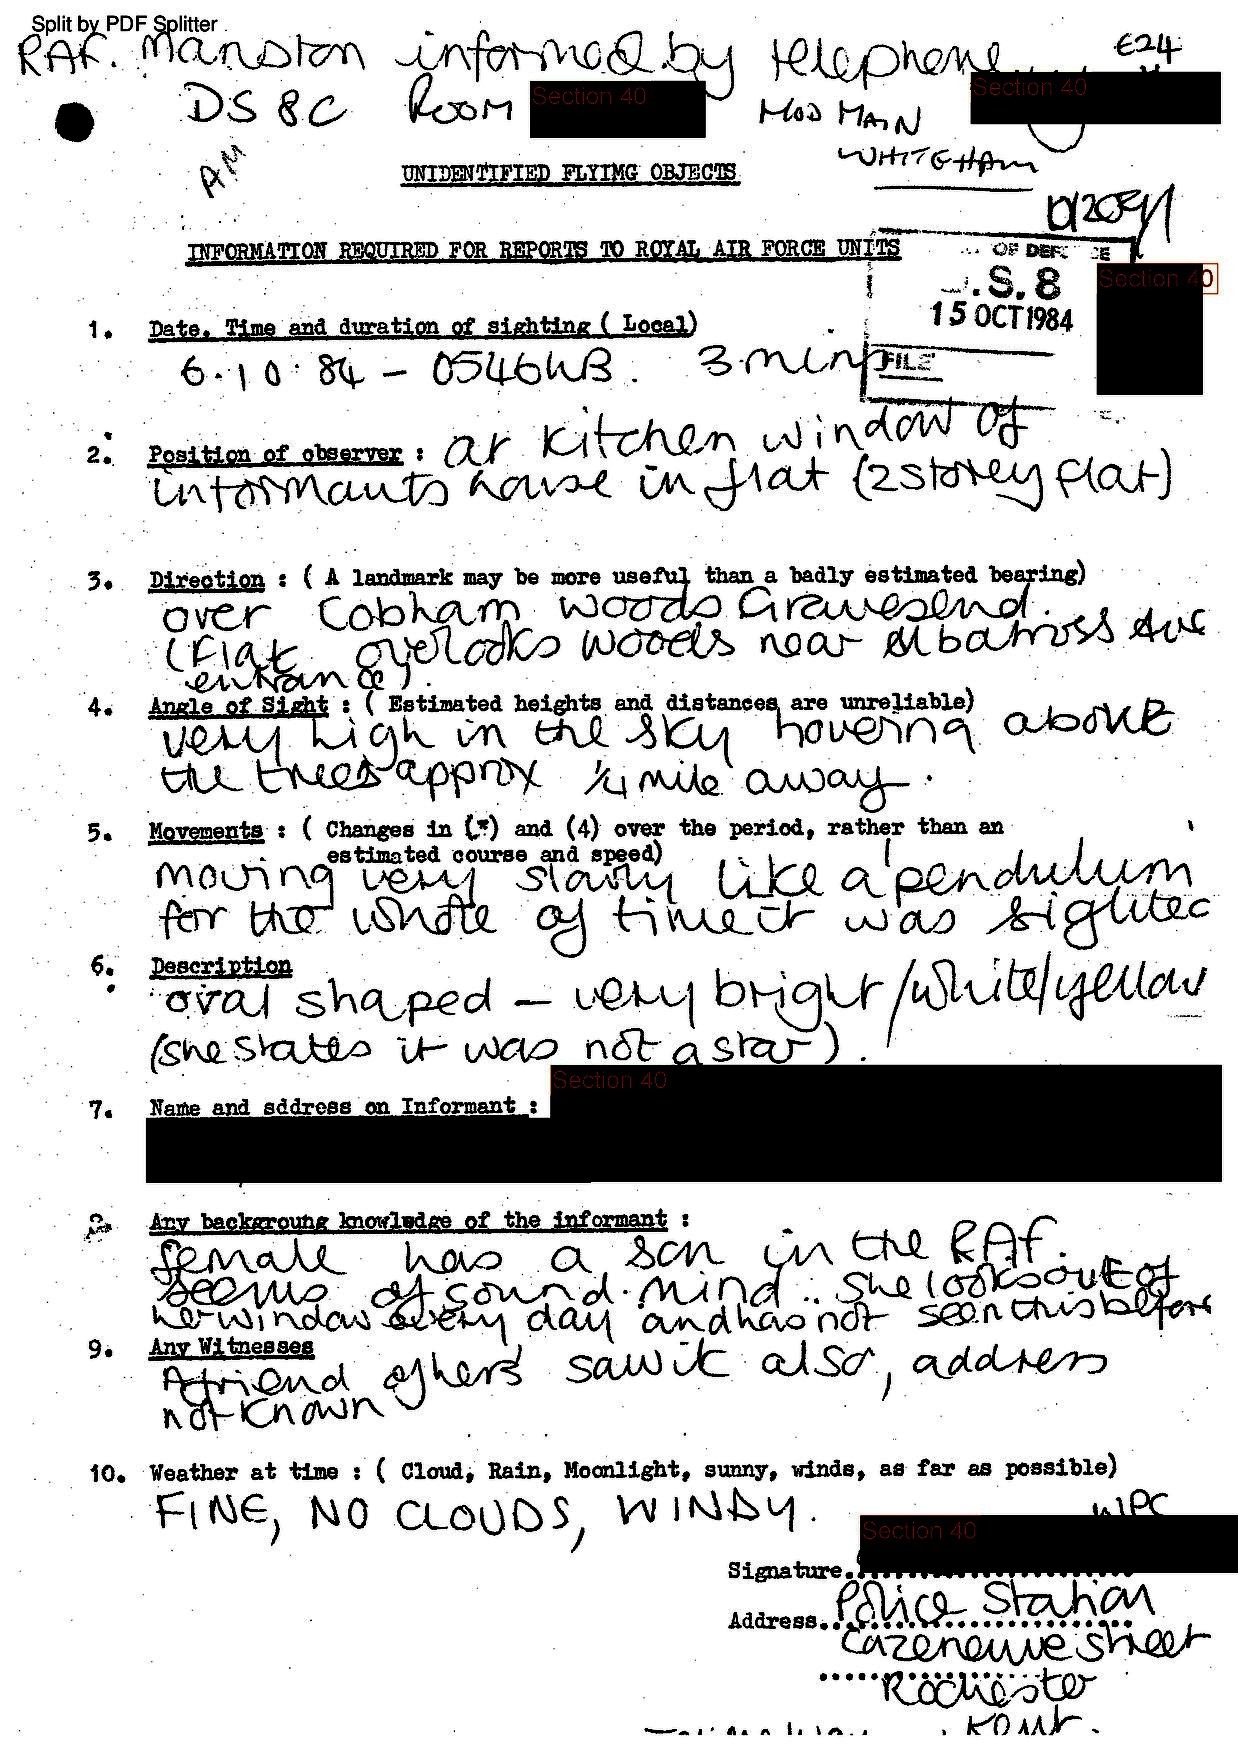 Split by PDF Splitter
RAF. Manston informed by telephone E24
DS 8C Room Section 40 MOD MAIN Section 40
WHITEHAM
AM
UNIDENTIFIED FLYIMG OBJECTS
D/209/1
INFORMATION REQUIRED FOR REPORTS TO ROYAL AIR FORCE UNITS
OF DEF CE
.S. 8 Section 40
15 OCT 1984
FILE
1. Date. Time and duration of sighting ( Local)
6.10.84 - 0546 3 mins
2. Position of observer : at kitchen window of
informants house in flat (2 storey flat)
3. Direction : ( A landmark may be more useful than a badly estimated bearing)
over Cobham woods Gravesend.
(flat overlooks woods near Albatross Ave
entrance).
4. Angle of Sight : ( Estimated heights and distances are unreliable)
very high in the sky hovering above
the trees approx 1/4 mile away.
5. Movements : ( Changes in (3) and (4) over the period, rather than an
estimated course and speed)
moving very slowly like a pendulum
for the whole of time it was sighted
6. Description
oval shaped - very bright/white/yellow
(she states it was not a star).
Section 40
7. Name and sddress on Informant :
8. Any backgroung knowledge of the informant :
female has a son in the RAF.
seems of sound mind.. she looks out of
her window every day and has not seen this before
9. Any Witnesses
A friend of hers saw it also, address
not known
10. Weather at time : ( Cloud, Rain, Moonlight, sunny, winds, as far as possible)
FINE, NO CLOUDS, WINDY.
WPC
Section 40
Signature
Address Police Station
Cazeneuve street
Rochester
Kent.